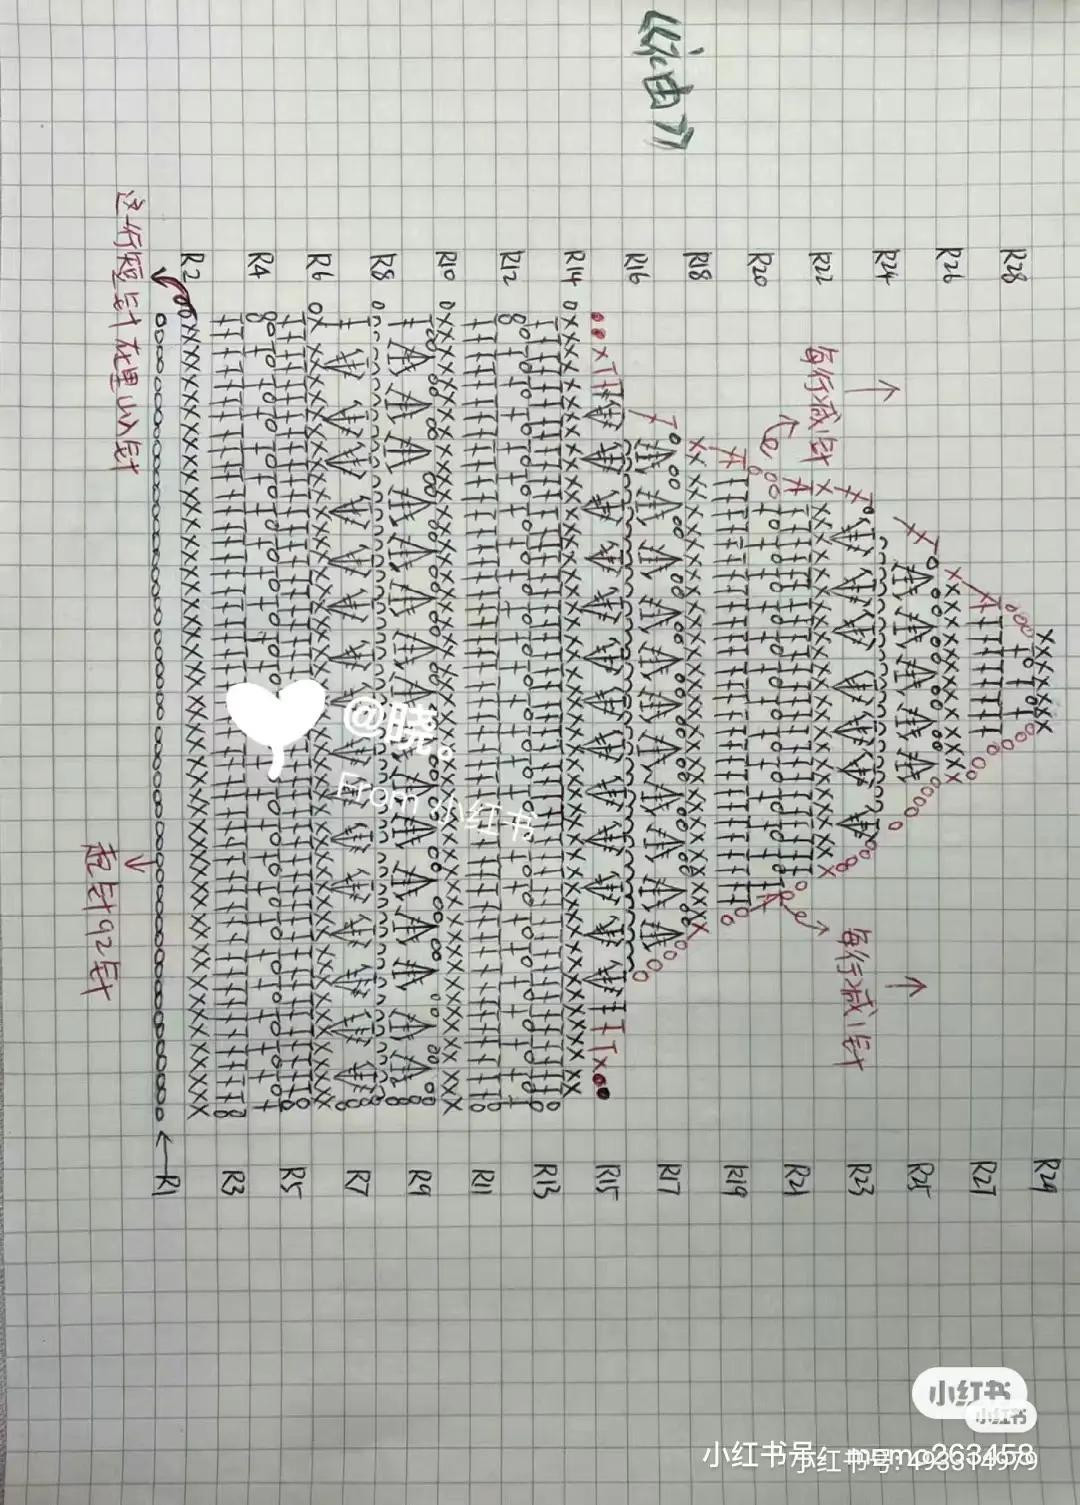 《缘由》
R2
R4
R6
R8
R10
R12
R14
R16
R18
R20
R22
R24
R26
R28
每行减1针
这行短针在里山针
起针92针
每行减1针
R1
R3
R5
R7
R9
R11
R13
R15
R17
R19
R21
R23
R25
R27
R29
@晓。
From 小红书
小红书
小红书
小红书号:
小红书号: 495514979